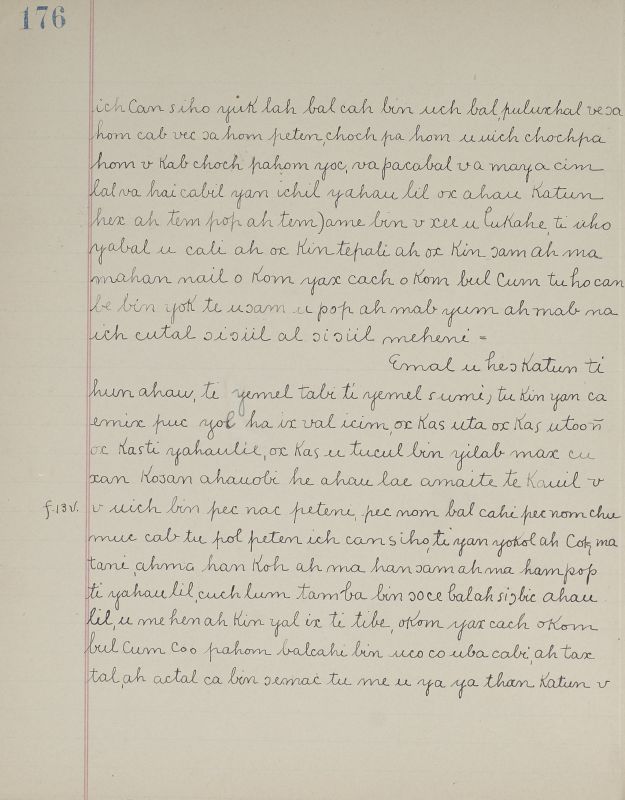 176
ich Can siho yuk lah bal cah bin uch bal, puluxhal ve ɔa
hom cab vec ɔa hom peten, choch pa hom u uich chochpa
hom v Kab choch pahom yoc, va pacabal va maya cim
lal va hai cabil yan ichil yahau lil ox ahau Katun
hex ah tem pop ah tem)ame bin v xec u lukahe, ti uho
yabal u cali ah ox Kin tepali ah ox Kin ɔam ah ma
mahan nail o Kom yax cach o Kom bul Cum tu ho can
be bin yok te uɔam u pop ah mab yum ah mab na
ich cutal ɔiɔiil al ɔiɔiil meheni =
Emal u heɔ Katun ti
hun ahau, ti yemel tabi ti yemel sumi; tu Kin yan ca
emix puc yol ha ix val icim, ox Kas uta ox Kas utoon̄
ox Kasti yahaulil, ox Kas u tucul bin yilab max cu
xan Koɔan ahauobi he ahau lae amaite te Kauil v
f. 13 v. v uich bin pec nac peteni, pec nom bal cahi pec nom chu
muc cab tu pol peten ich can siho, ti yan yokol ah Cotz ma
tani, ahma han Koh ah ma han ɔam ah ma ham pop
ti yahau lil, cuch lum tamba bin ɔoce balah siɔbic ahau
lil, u me hen ah Kin yal ix ti tibe, oKom yax cach oKom
bul Cum Coo pahom balcahi bin uco co uba cabi, ah tax
tal, ah actal ca bin ɔemac tu me u ya ya than Katun v